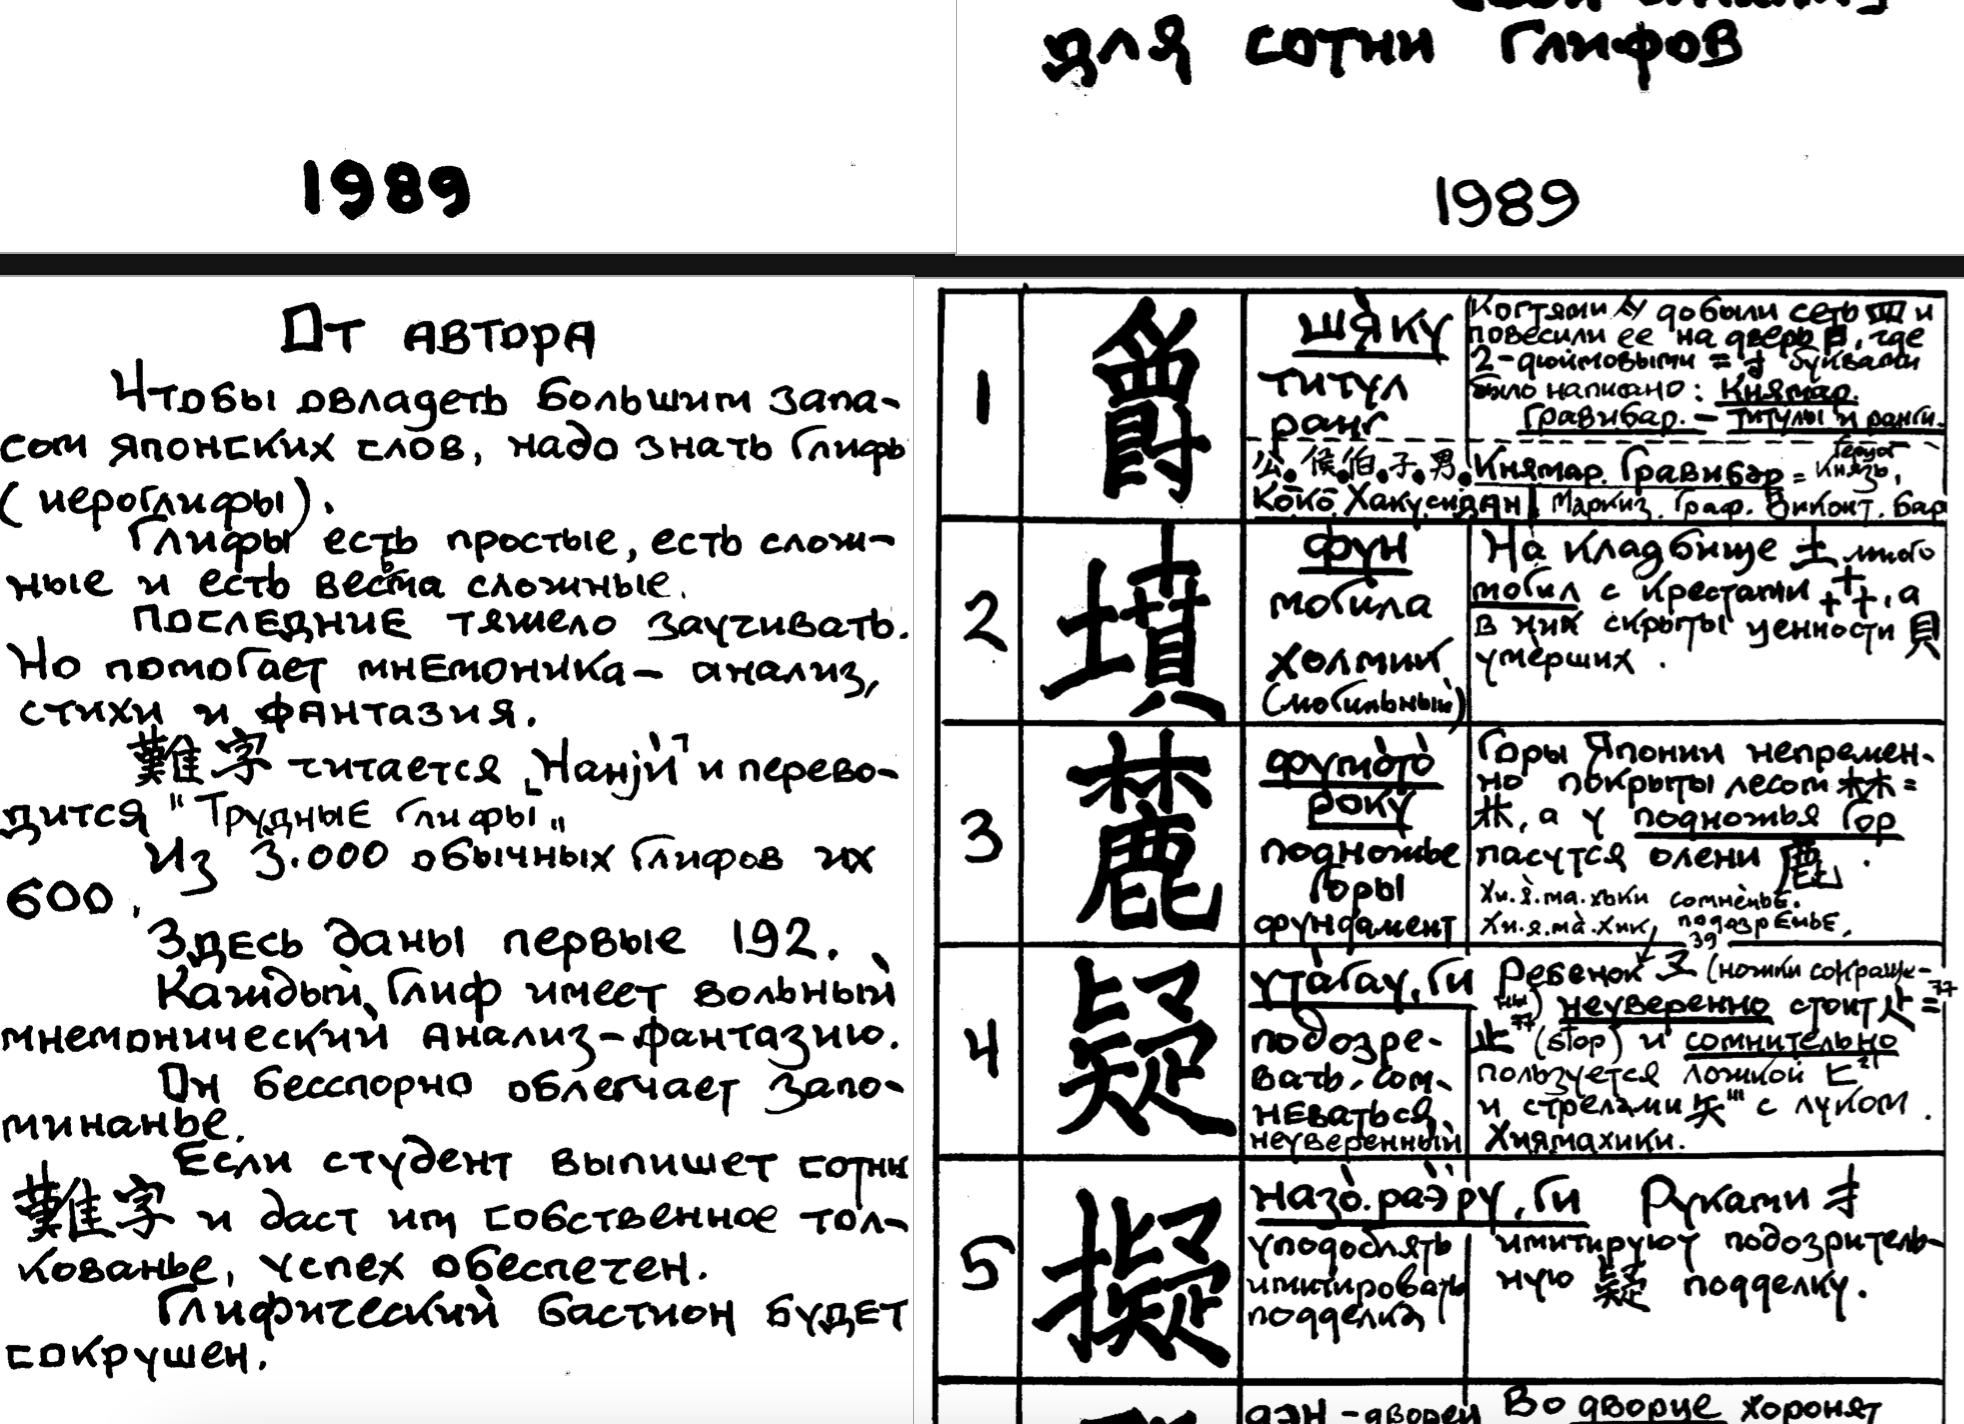 для сотни Глифов
1989
1989
От автора
Чтобы овладеть большим запа-
сом японских слов, надо знать Глифы
(иероглифы).
Глифы есть простые, есть слож-
ные и есть весьма сложные.
Последние тяжело заучивать.
Но помогает мнемоника — анализ,
стихи и фантазия.
難字 читается „Нанjи" и перево-
дится "Трудные Глифы„
Из 3.000 обычных Глифов их
600.
Здесь даны первые 192.
Каждый Глиф имеет вольный
мнемонический анализ-фантазию.
Он бесспорно облегчает запо-
минанье.
Если студент выпишет сотни
難字 и даст им собственное тол-
кованье, успех обеспечен.
Глифический бастион будет
сокрушен.
1
爵
шяку
титул
ранг
Когтями добыли сеть 罒 и
повесили ее на дверь, где
2-дюймовыми = 寸 буквами
было написано: Княмар.
Гравибар. — титулы и ранги.
公.侯.伯.子.男.
Ко̄ко̄. Хаку.сидан
Княмар. Гравибар =
Князь,
Маркиз. Граф. Виконт. Бар
2
墳
фун
могила
холмик
(могильный)
На кладбище 土 много
могил с крестами, а
в них скрыты ценности 貝
умерших.
3
麓
фумото
року
подножье
горы
фундамент
Горы Японии непремен-
но покрыты лесом 林 =
林, а у подножья Гор
пасутся олени 鹿.
Хи.я.ма.хики сомненье.
Хи.я.ма.хик, подозренье.
4
疑
утагау, ги
подозре-
вать, сом-
неваться,
неуверенный
39
Ребенок 子 (ножки сокраще-
ны) неуверенно стоит =
止 77 (stop) и сомнительно
пользуется ложкой 匕 21
и стрелами 矢 111 с луком.
Хиямахики.
5
擬
назо.раэру, ги
уподоблять
имитировать
подделка
Руками 扌
имитируют подозритель-
ную 疑 подделку.
дэн - дворец
Во дворце хоронят